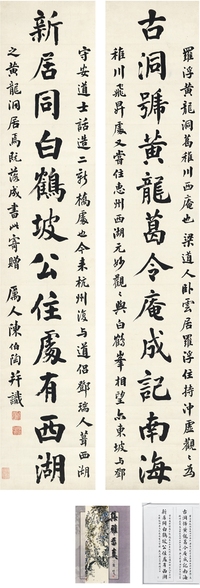 古洞號黃龍葛令庵成記南海
羅浮黃龍洞葛稚川西庵也 梁道人卧雲居羅浮住持沖虛觀之為
稚川飛昇處又嘗住惠州西湖元妙觀之與白鶴峯相望亦東坡与鄧
守安道士話造二新橋處也今來杭州復与道侶鄧瑞人葺西湖
之黃龍洞居焉既落成書此寄贈 厲人陳伯陶并識
新居同白鶴坡公住處有西湖